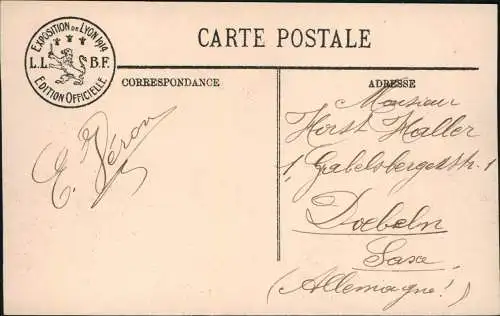 EXPOSITION DE LYON 1914
L.L. B.F.
EDITION OFFICIELLE
CARTE POSTALE
CORRESPONDANCE
ADRESSE
E. Véron
Monsieur
Horst Haller
1, Gabelsbergerstr. 1
Doebeln
Saxe
(Allemagne!)